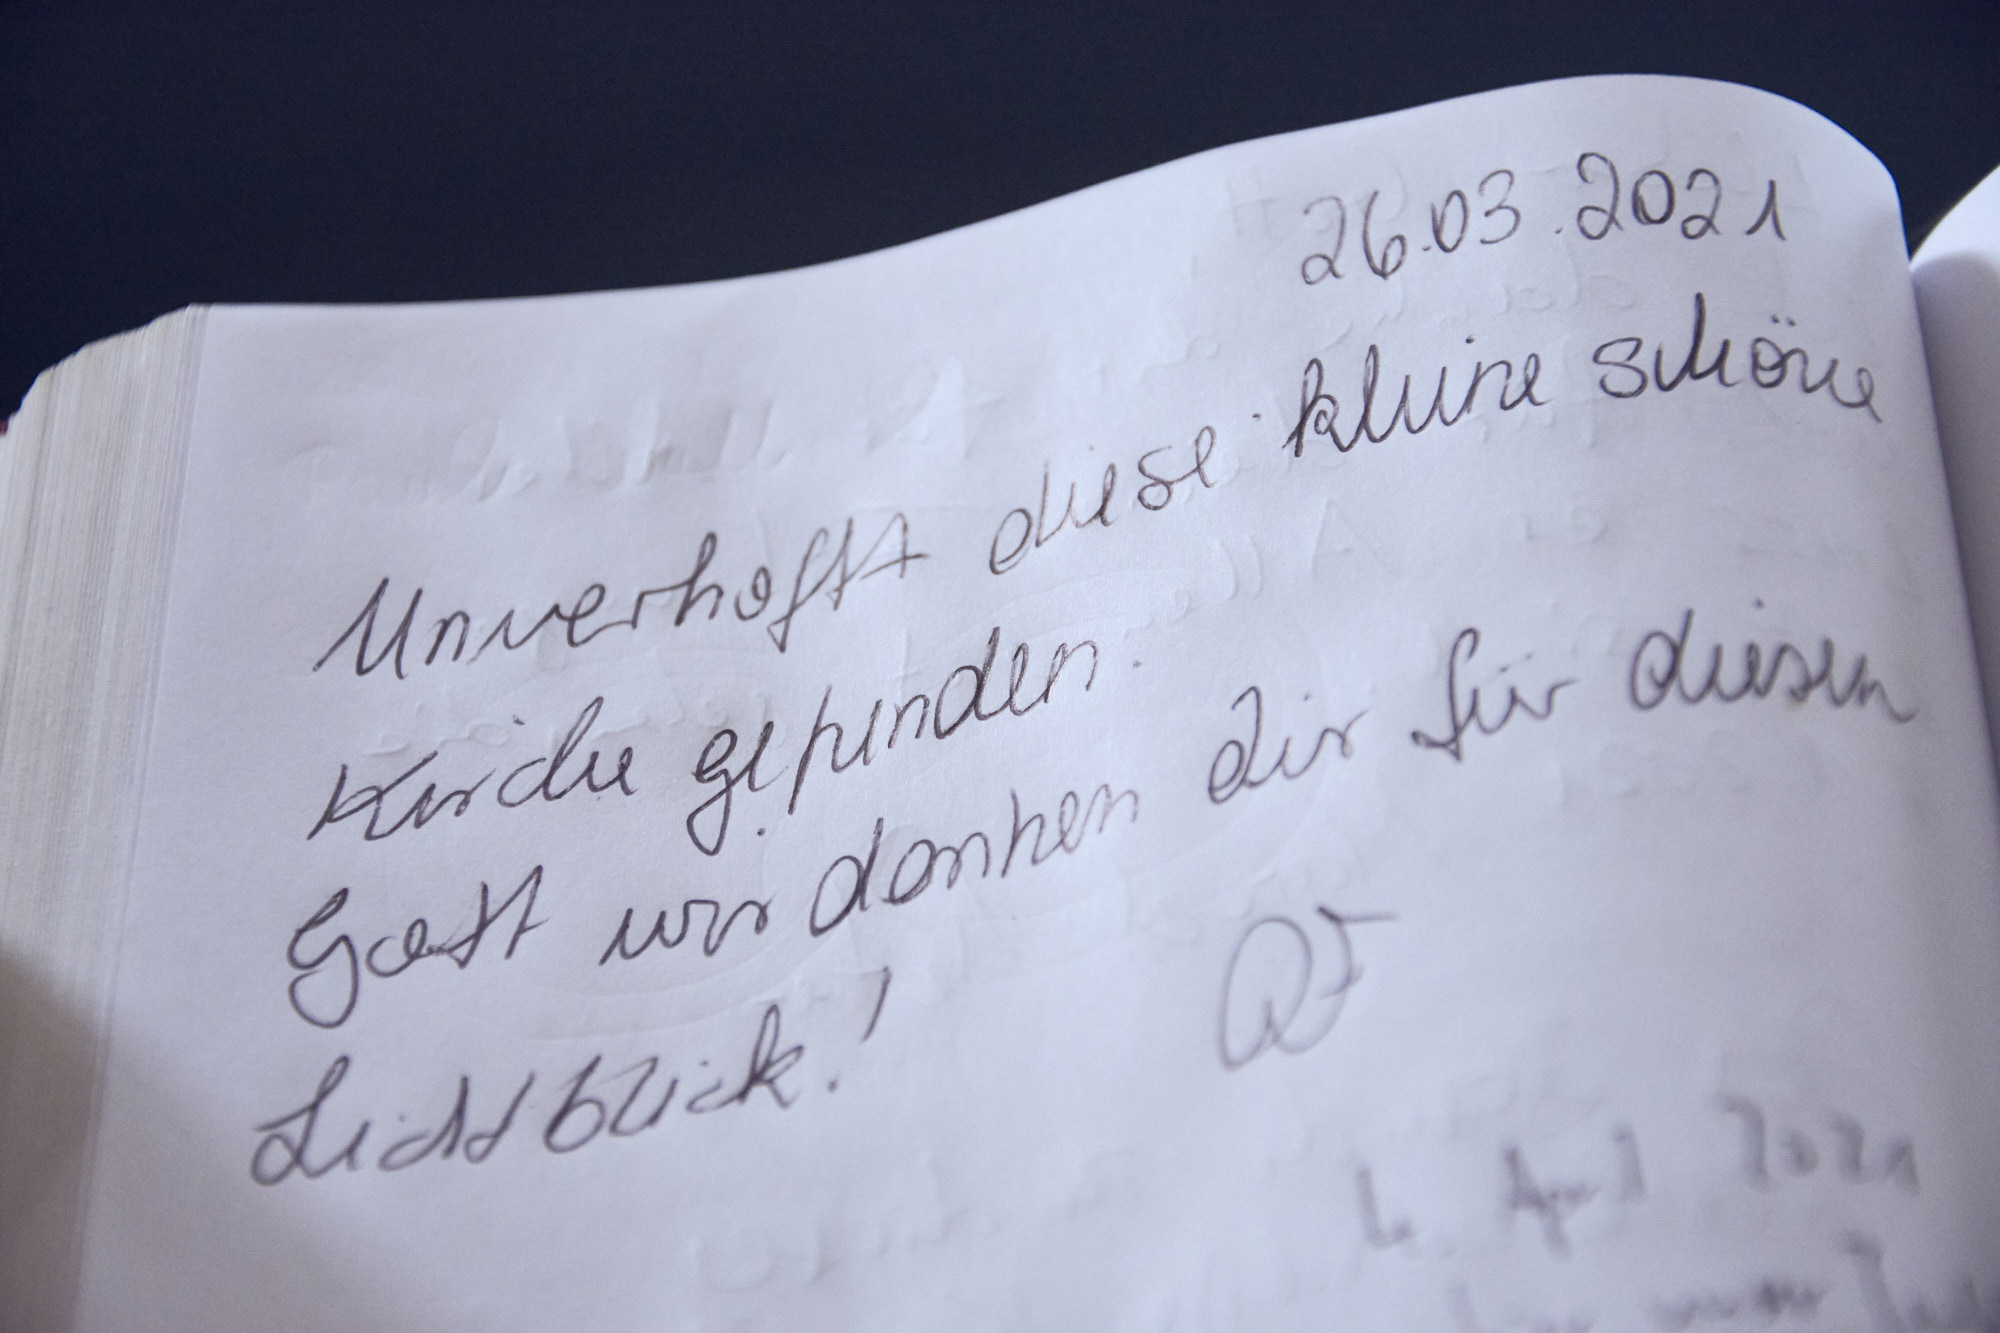 26.03.2021
Unverhofft diese kleine schöne
Kirche gefunden.
Gott wir danken dir für diesen
Lichtblick!
April 2021